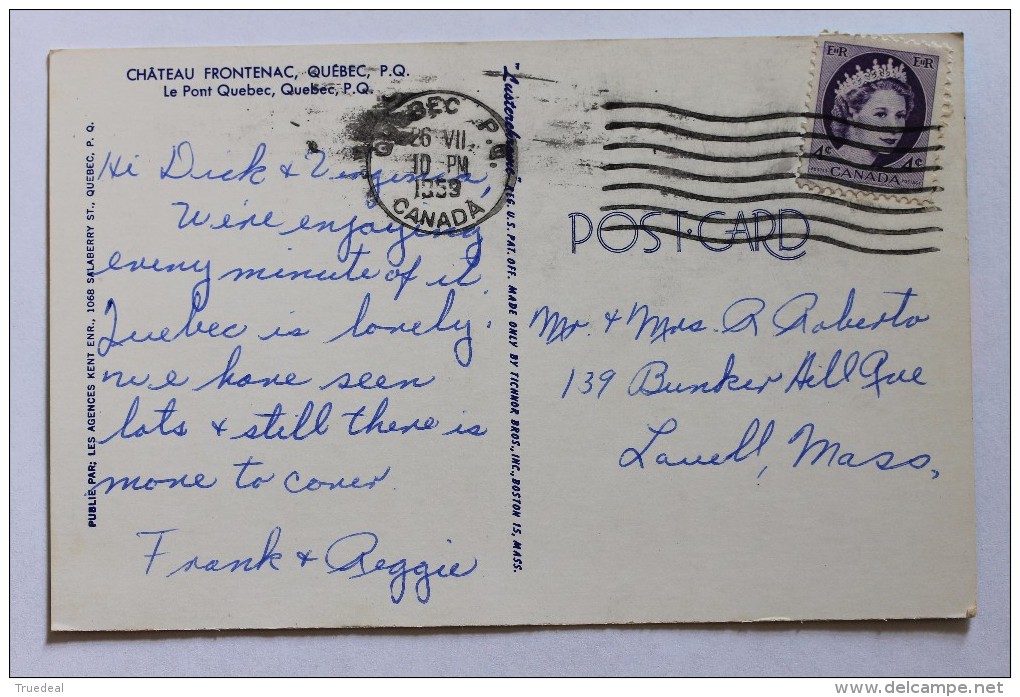 CHÂTEAU FRONTENAC, QUÉBEC, P.Q.
Le Pont Quebec, Quebec, P.Q.
Hi Dick & Virginia,
We're enjoying
every minute of it.
Quebec is lovely.
we have seen
lots & still there is
more to cover.
Frank & Reggie
PUBLIÉ PAR; LES AGENCES KENT ENR., 1068 SALABERRY ST., QUEBEC, P. Q.
"Lusterchrome" REG. U.S. PAT. OFF. MADE ONLY BY TICHNOR BROS., INC., BOSTON 15, MASS.
BEC P.Q.
26 VII
10 PM
1959
CANADA
EIIR EIIR
4¢ 4¢
POSTES CANADA POSTAGE
POST·CARD
Mr. & Mrs. R Roberto
139 Bunker Hill Ave
Lowell, Mass.
Truedeal
delcampe.net